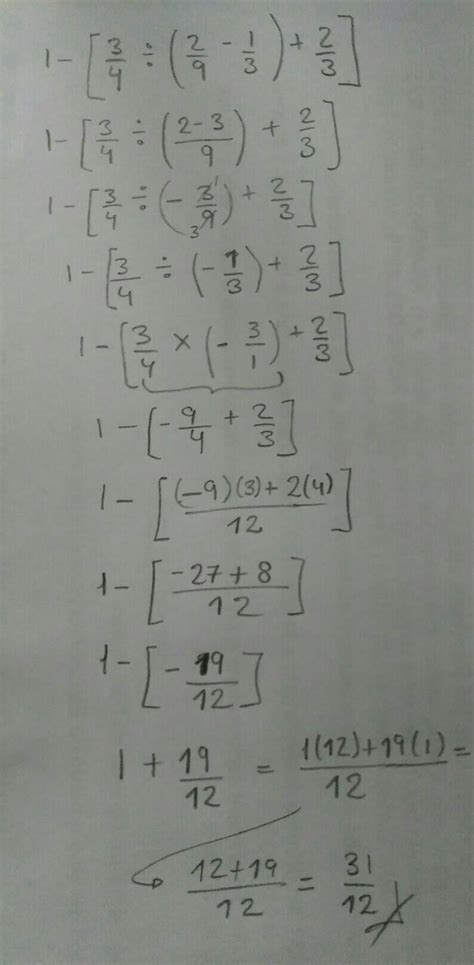 1 - [3/4 ÷ (2/9 - 1/3) + 2/3]
1 - [3/4 ÷ ((2-3)/9) + 2/3]
1 - [3/4 ÷ (- 3 1/3 9) + 2/3]
1 - [3/4 ÷ (- 1/3) + 2/3]
1 - [3/4 × (- 3/1) + 2/3]
1 - [- 9/4 + 2/3]
1 - [((-9)(3) + 2(4))/12]
1 - [(-27 + 8)/12]
1 - [- 19/12]
1 + 19/12 = (1(12) + 19(1))/12 =
(12 + 19)/12 = 31/12